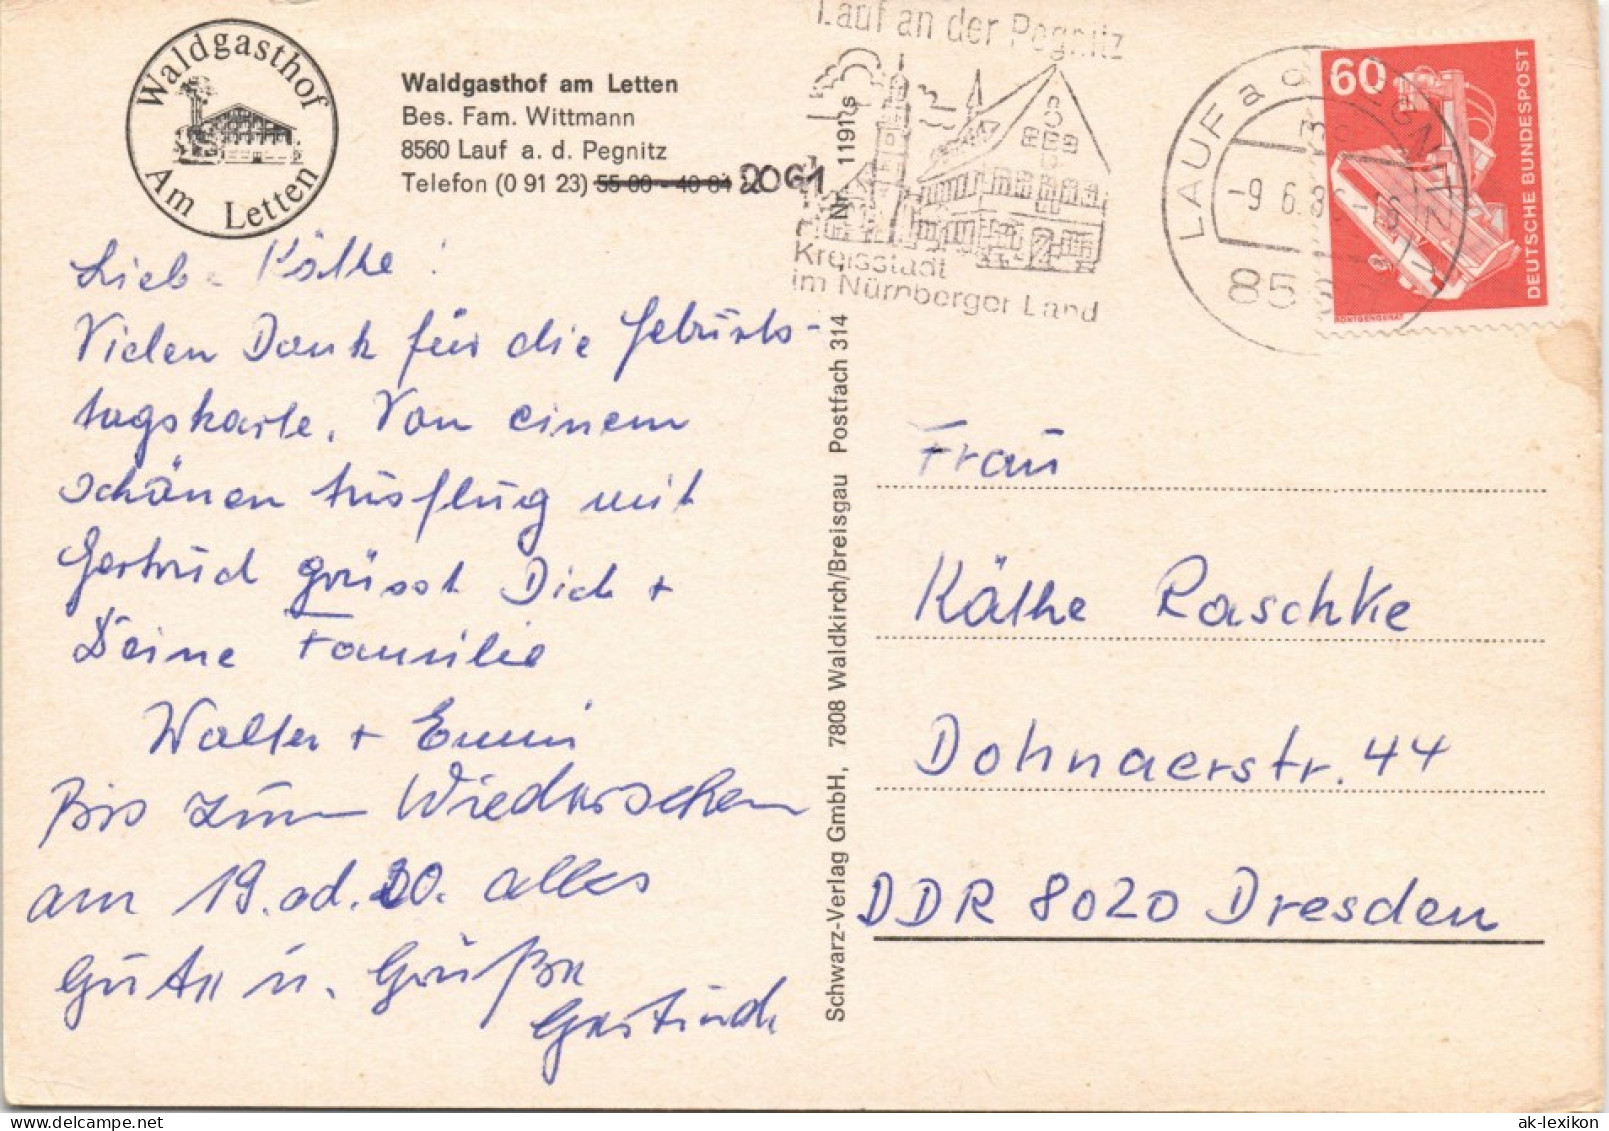 Waldgasthof
Am Letten
Waldgasthof am Letten
Bes. Fam. Wittmann
8560 Lauf a. d. Pegnitz
Telefon (0 91 23) 55 00 - 40 84 2061
Lauf an der Pegnitz
Kreisstadt
im Nürnberger Land
LAUF a d PEGNITZ
-9.6.8
85
60
DEUTSCHE BUNDESPOST
RÖNTGENGERÄT
Liebe Käthe!
Vielen Dank für die Geburts-
tagskarte. Von einem
schönen Ausflug mit
Gertrud grüsst Dich +
Deine Familie
Walter + Emmi
Bis zum Wiedersehen
am 19. od. 20. alles
Gute u. Grüße
Gertrud
Schwarz-Verlag GmbH, 7808 Waldkirch/Breisgau Postfach 314 Nr. 1191 s
Frau
Käthe Raschke
Dohnaerstr. 44
DDR 8020 Dresden
ak-lexikon